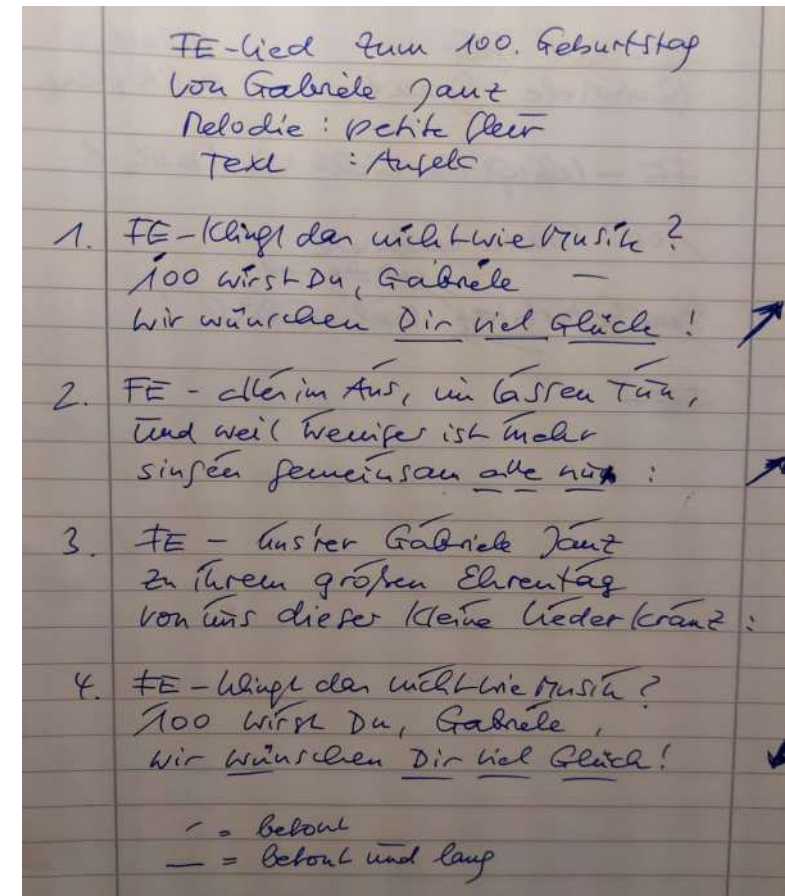 FE-Lied zum 100. Geburtstag
von Gabriele Janz
Melodie: petite fleur
Text : Angela
1. FE - klingt das nicht wie Musik?
100 wirst Du, Gabriele —
wir wünschen Dir viel Glück!
2. FE - alles im Aus, im lassen Tun,
und weil weniger ist mehr
singen gemeinsam alle nur:
3. FE - uns'rer Gabriele Janz
zu ihrem großen Ehrentag
von uns dieser kleine Liederkranz:
4. FE - klingt das nicht wie Musik?
100 wirst Du, Gabriele,
wir wünschen Dir viel Glück!
= betont
— = betont und lang